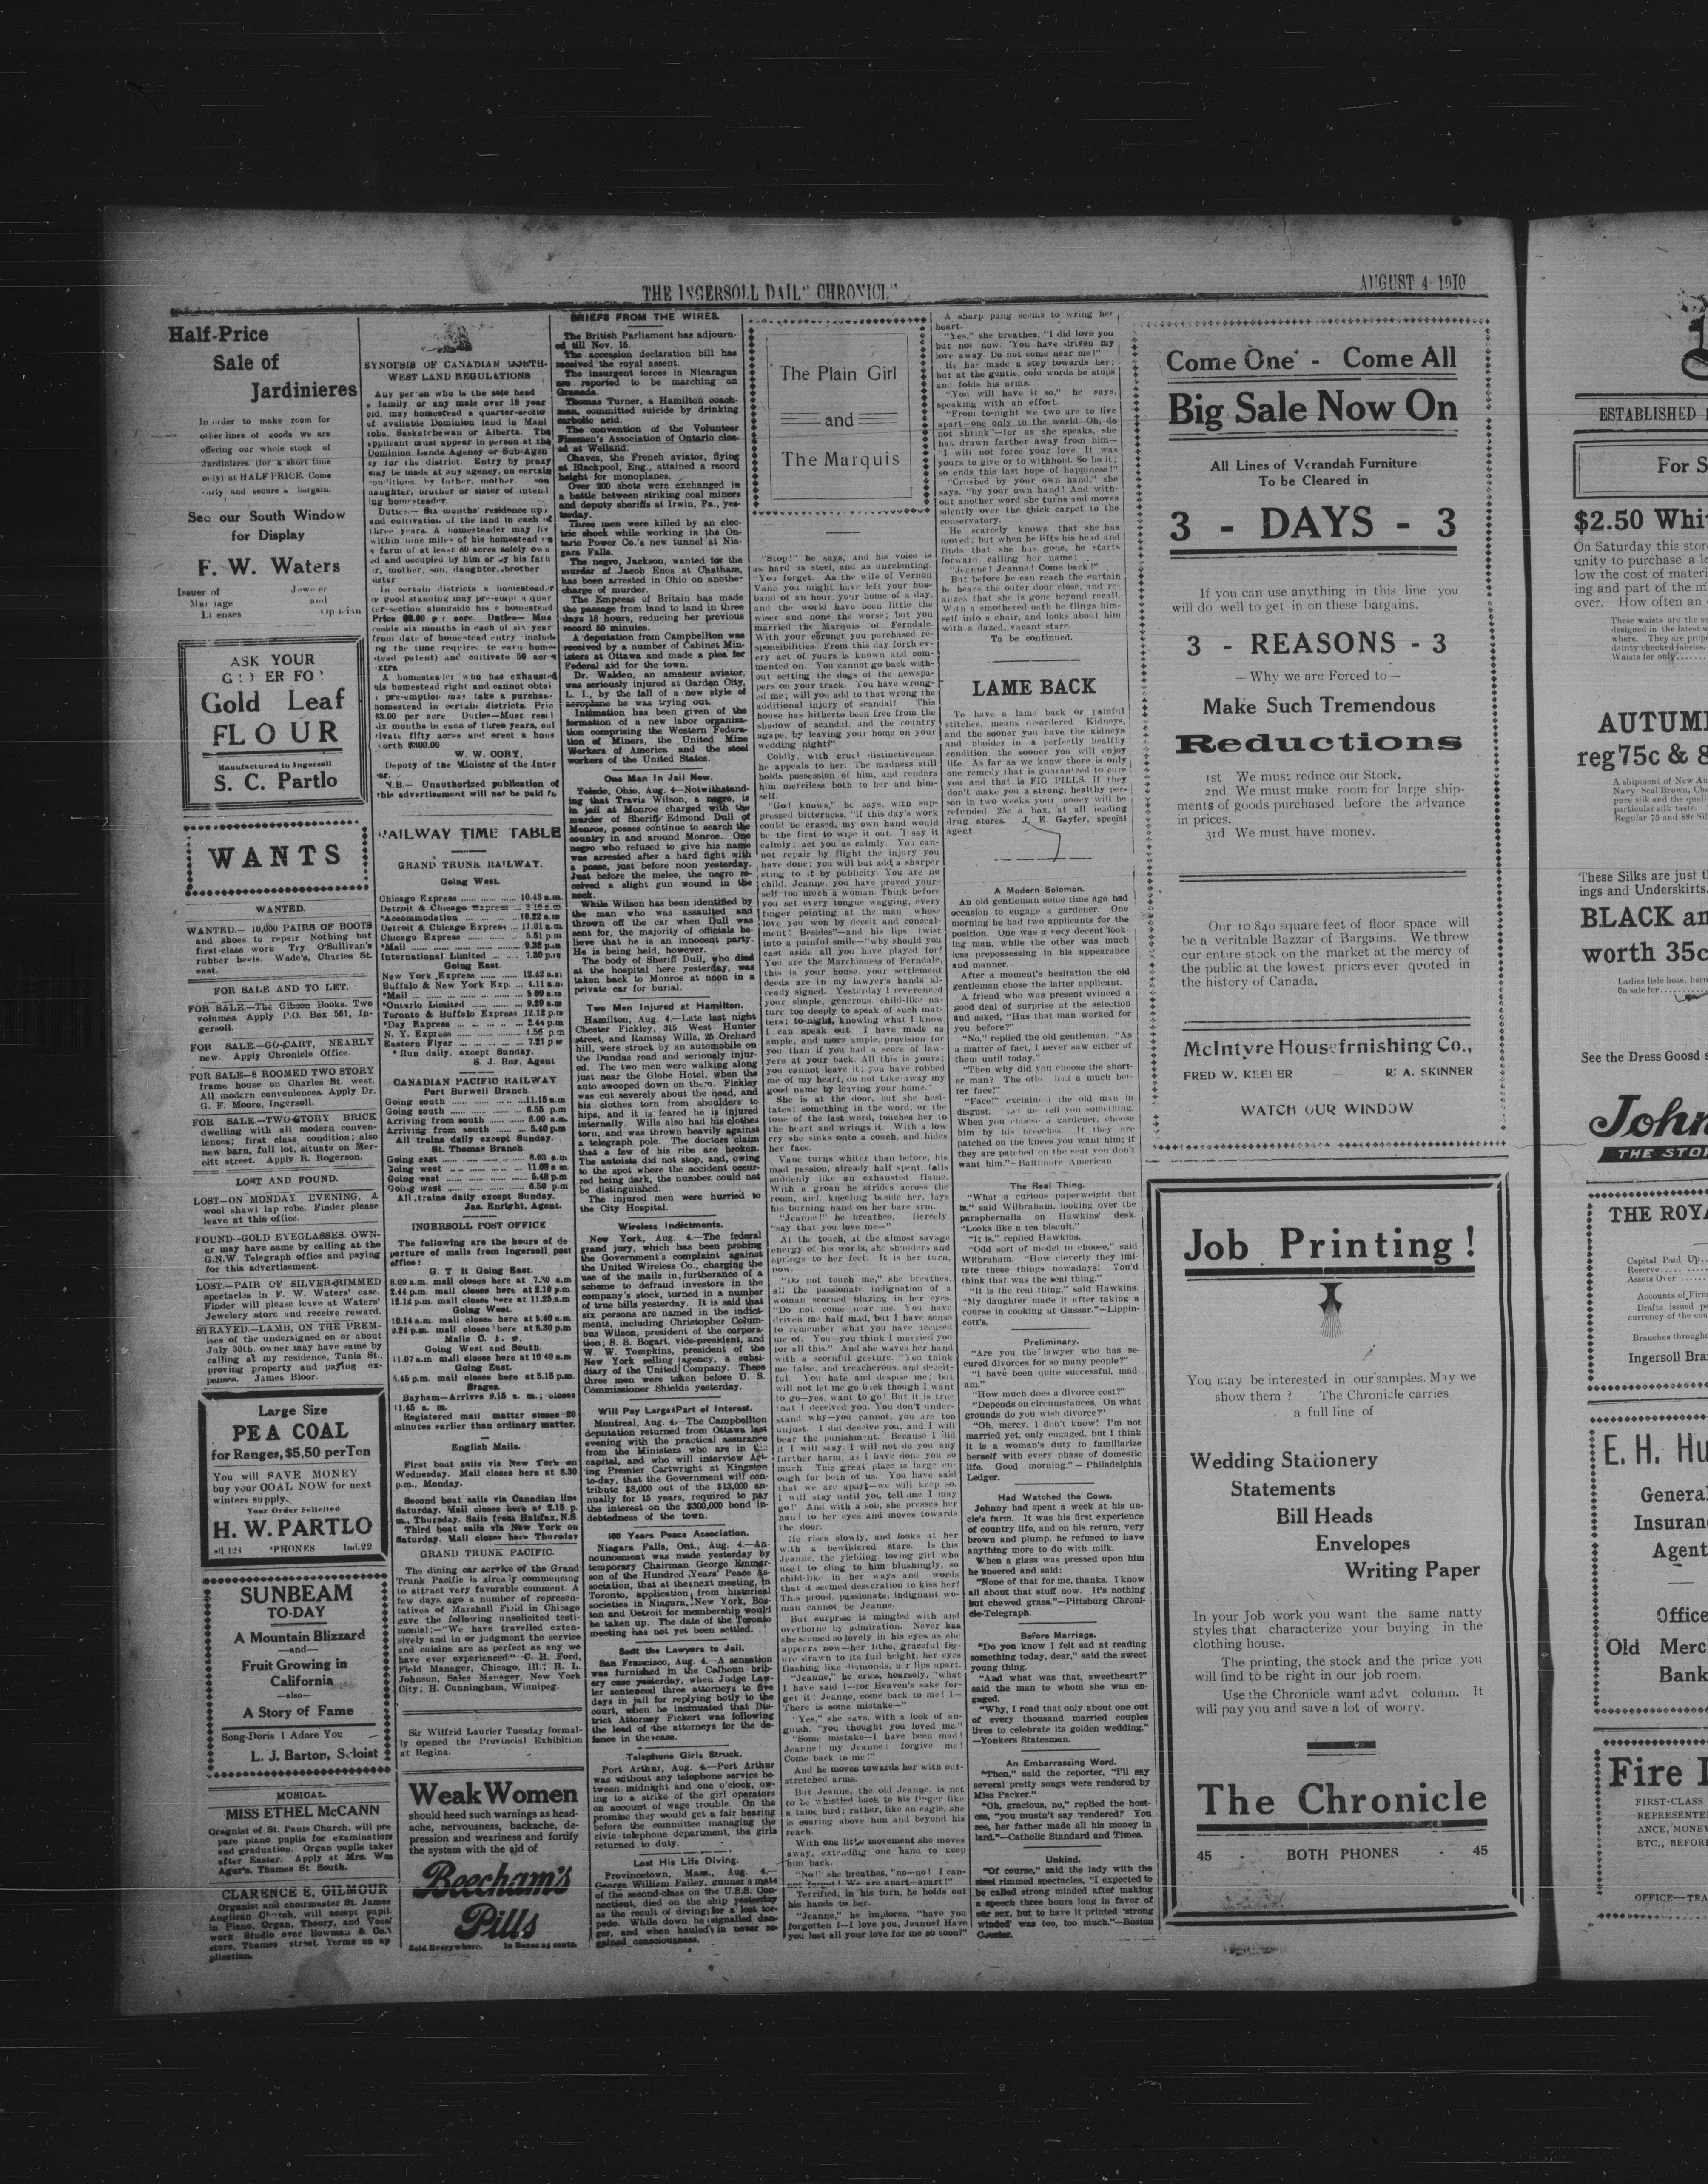 THE INGERSOLL DAIL" CHRONICL"
AUGUST 4- 1910
Half-Price
Sale of
Jardinieres
In order to make room for
other lines of goods we are
offering our whole stock of
Jardinieres (for a short time
only) at HALF PRICE. Come
early and secure a bargain.
See our South Window
for Display
F. W. Waters
Issuer of
Marriage
Licenses
Jeweler
and
Optician
ASK YOUR
Gold Leaf
FLOUR
Manufactured in Ingersoll
S. C. Partlo
WANTS
WANTED.
WANTED.— 10,000 PAIRS OF BOOTS
and shoes to repair Nothing but
first-class work Try O'Sullivan's
rubber heels. Wade's, Charles St.
east.
FOR SALE AND TO LET.
FOR SALE.—The Gibson Books. Two
volumes. Apply P.O. Box 561, In-
gersoll.
FOR SALE.—GO-CART, NEARLY
new. Apply Chronicle Office.
FOR SALE—8 ROOMED TWO STORY
frame house on Charles St. west.
All modern conveniences. Apply Dr.
G. F. Moore, Ingersoll.
FOR SALE.—TWO-STORY BRICK
dwelling with all modern conven-
iences; first class condition; also
new barn, full lot, situate on Mer-
eitt street. Apply R. Rogerson.
LOST AND FOUND.
LOST—ON MONDAY EVENING, A
wool shawl lap robe. Finder please
leave at this office.
FOUND—GOLD EYEGLASSES. OWN-
er may have same by calling at the
G.N.W. Telegraph office and paying
for this advertisement.
LOST.—PAIR OF SILVER-RIMMED
spectacles in F. W. Waters' case.
Finder will please leave at Waters'
Jewelery store and receive reward.
STRAYED.—LAMB, ON THE PREM-
ises of the undersigned on or about
July 30th. owner may have same by
calling at my residence, Tunis St.,
proving property and paying ex-
penses. James Bloor.
Large Size
PEA COAL
for Ranges, $5,50 per Ton
You will SAVE MONEY
buy your COAL NOW for next
winters supply.
Your Order Solicited
H. W. PARTLO
'PHONES Ind.22
SUNBEAM
TO-DAY
A Mountain Blizzard
—and—
Fruit Growing in
California
—also—
A Story of Fame
Song-Doris I Adore You
L. J. Barton, Soloist
MUSICAL.
MISS ETHEL McCANN
Oragnist of St. Pauls Church, will pre
pare piano pupils for examinations
and graduation. Organ pupils taken
after Easter. Apply at Mrs. Wm
Agur's, Thames St. South.
CLARENCE E. GILMOUR
Organist and choirmaster St. James
Anglican Church, will accept pupil.
in Piano, Organ, Theory, and Vocal
work Studio over Bowman & Co.'s
store, Thames street. Terms on ap
plication.
SYNOPSIS OF CANADIAN NORTH-
WEST LAND REGULATIONS
Any person who is the sole head
a family, or any male over 18 year
old, may homestead a quarter-sectio
of available Dominion land in Mani
toba, Saskatchewan or Alberta. The
applicant must appear in person at the
Dominion Lands Agency or Sub-Agen
cy for the district. Entry by proxy
may be made at any agency, on certain
conditions, by father, mother, son
daughter, brother or sister of intend
ing homesteader.
Duties— Six months' residence up
and cultivation of the land in each of
three years. A homesteader may liv
within nine miles of his homestead
a farm of at least 80 acres solely own
ed and occupied by him or by his fath
er, mother, son, daughter, brother
sister
In certain districts a homesteader
good standing may pre-empt a quar
ter-section alongside his homestead
Price $3.00 per acre. Duties— Mus
reside six months in each of six year
from date of homestead entry includ
ing the time require to earn home
stead patent) and cultivate 50 acre
extra
A homesteader who has exhausted
his homestead right and cannot obtai
a pre-emption may take a purchas
homestead in certain districts. Pric
$3.00 per acre Duties—Must resi
six months in each of three years, cul
tivate fifty acres and erect a hous
worth $300.00
W. W. CORY,
Deputy of the Minister of the Inter
or.
N.B.— Unauthorized publication of
this advertisement will not be paid fo
RAILWAY TIME TABLE
GRAND TRUNK RAILWAY.
Going West.
Chicago Express ... 10.43 a.m.
Detroit & Chicago Express ... 3.16 a.m
*Accommodation ... 10.22 a.m
Detroit & Chicago Express ... 11.01 a.m
Chicago Express ... 5.51 p.m
*Mail ... 9.32 p.m
International Limited ... 7.30 p.m
Going East.
New York Express ... 12.42 a.m
Buffalo & New York Exp. ... 4.11 a.m
*Mail ... 8 09 a.m
*Ontario Limited ... 9.29 a.m
Toronto & Buffalo Express 12.12 p.m
*Day Express ... 2.44 p.m
N. Y. Express ... 4.56 p m
Eastern Flyer ... 7.21 p m
* Run daily, except Sunday.
S. J. Roy, Agent
CANADIAN PACIFIC RAILWAY
Port Burwell Branch.
Going south ... 11.15 a.m
Going south ... 6.55 p.m
Arriving from south ... 8.00 a.m
Arriving from south ... 5.40 p.m
All trains daily except Sunday.
St. Thomas Branch.
Going east ... 8.03 a.m
Going west ... 11.08 a m
Going east ... 5.48 p.m
Going west ... 6.50 p.m
All trains daily except Sunday.
Jas. Enright, Agent.
INGERSOLL POST OFFICE
The following are the hours of de
parture of mails from Ingersoll post
office:
G. T R Going East.
8.09 a.m. mail closes here at 7.30 a.m
2.44 p.m. mail closes here at 2.10 p.m
12.12 p.m. mail closes here at 11.25 a.m
Going West.
10.14 a.m. mail closes here at 9.40 a.m
9.24 p.m. mail closes here at 8.30 p.m
Mails C. P. R.
Going West and South.
11.07 a.m mail closes here at 10 40 a.m
Going East.
5.45 p.m. mail closes here at 5.15 p.m.
Stages.
Bayham—Arrives 9.15 a. m.; closes
11.45 a. m.
Registered mail matter closes 20
minutes earlier than ordinary matter.
English Mails.
First boat sails via New York on
Wednesday. Mail closes here at 8.30
p.m., Monday.
Second boat sails via Canadian line
Saturday. Mail closes here at 2.15 p.
m., Thursday. Sails from Halifax, N.S.
Third boat sails via New York on
Saturday. Mail closes here Thursday
GRAND TRUNK PACIFIC.
The dining car service of the Grand
Trunk Pacific is already commencing
to attract very favorable comment. A
few days ago a number of represen-
tatives of Marshall Field in Chicago
gave the following unsolicited testi-
monial:—"We have travelled exten-
sively and in or judgment the service
and cuisine are as perfect as any we
have ever experienced." C. H. Ford,
Field Manager, Chicago, Ill.; H. L.
Johnson, Sales Manager, New York
City; H. Cunningham, Winnipeg.
Sir Wilfrid Laurier Tuesday formal-
ly opened the Provincial Exhibition
at Regina.
Weak Women
should heed such warnings as head-
ache, nervousness, backache, de-
pression and weariness and fortify
the system with the aid of
Beecham's
Pills
Sold Everywhere. In Boxes 25 cents.
BRIEFS FROM THE WIRES.
The British Parliament has adjourn-
ed till Nov. 15.
The accession declaration bill has
received the royal assent.
The insurgent forces in Nicaragua
are reported to be marching on
Granada.
Thomas Turner, a Hamilton coach-
man, committed suicide by drinking
carbolic acid.
The convention of the Volunteer
Firemen's Association of Ontario clos-
ed at Welland.
Chavez, the French aviator, flying
at Blackpool, Eng., attained a record
height for monoplanes.
Over 200 shots were exchanged in
a battle between striking coal miners
and deputy sheriffs at Irwin, Pa., yes-
terday.
Three men were killed by an elec-
tric shock while working in the On-
tario Power Co.'s new tunnel at Nia-
gara Falls.
The negro, Jackson, wanted for the
murder of Jacob Enos at Chatham,
has been arrested in Ohio on another
charge of murder.
The Empress of Britain has made
the passage from land to land in three
days 18 hours, reducing her previous
record 50 minutes.
A deputation from Campbellton was
received by a number of Cabinet Min-
isters at Ottawa and made a plea for
Federal aid for the town.
Dr. Walden, an amateur aviator,
was seriously injured at Garden City,
L. I., by the fall of a new style of
aeroplane he was trying out.
Intimation has been given of the
formation of a new labor organiza-
tion comprising the Western Federa-
tion of Miners, the United Mine
Workers of America and the steel
workers of the United States.
One Man In Jail Now.
Toledo, Ohio, Aug. 4—Notwithstand-
ing that Travis Wilson, a negro, is
in jail at Monroe charged with the
murder of Sheriff Edmond Dull of
Monroe, posses continue to search the
country in and around Monroe. One
negro who refused to give his name
was arrested after a hard fight with
a posse, just before noon yesterday.
Just before the melee, the negro re-
ceived a slight gun wound in the
neck.
While Wilson has been identified by
the man who was assaulted and
thrown off the car when Dull was
sent for, the majority of officials be-
lieve that he is an innocent party.
He is being held, however.
The body of Sheriff Dull, who died
at the hospital here yesterday, was
taken back to Monroe at noon in a
private car for burial.
Two Men Injured at Hamilton.
Hamilton, Aug. 4.—Late last night
Chester Fickley, 315 West Hunter
street, and Ramsay Wills, 25 Orchard
hill, were struck by an automobile on
the Dundas road and seriously injur-
ed. The two men were walking along
just near the Globe Hotel, when the
auto swooped down on them. Fickley
was cut severely about the head, and
his clothes torn from shoulders to
hips, and it is feared he is injured
internally. Wills also had his clothes
torn, and was thrown heavily against
a telegraph pole. The doctors claim
that a few of his ribs are broken.
The autoists did not stop, and, owing
to the spot where the accident occur-
red being dark, the number could not
be distinguished.
The injured men were hurried to
the City Hospital.
Wireless Indictments.
New York, Aug. 4.—The federal
grand jury, which has been probing
the Government's complaint against
the United Wireless Co., charging the
use of the mails in furtherance of a
scheme to defraud investors in the
company's stock, turned in a number
of true bills yesterday. It is said that
six persons are named in the indict-
ments, including Christopher Colum-
bus Wilson, president of the corpora-
tion; S. S. Bogart, vice-president, and
W. W. Tompkins, president of the
New York selling agency, a subsi-
diary of the United Company. These
three men were taken before U. S.
Commissioner Shields yesterday.
Will Pay Large Part of Interest.
Montreal, Aug. 4.—The Campbellton
deputation returned from Ottawa last
evening with the practical assurance
from the Ministers who are in the
capital, and who will interview Act-
ing Premier Cartwright at Kingston
to-day, that the Government will con-
tribute $8,000 out of the $13,000 an-
nually for 15 years, required to pay
the interest on the $300,000 bond in-
debtedness of the town.
100 Years Peace Association.
Niagara Falls, Ont., Aug. 4.—An-
nouncement was made yesterday by
temporary Chairman George Emmer-
son of the Hundred Years' Peace As-
sociation, that at the next meeting, in
Toronto, application from historical
societies in Niagara, New York, Bos-
ton and Detroit for membership would
be taken up. The date of the Toronto
meeting has not yet been settled.
Sent the Lawyers to Jail.
San Francisco, Aug. 4.—A sensation
was furnished in the Calhoun brib-
ery case yesterday, when Judge Law-
ler sentenced three attorneys to five
days in jail for replying hotly to the
court, when he insinuated that Dis-
trict Attorney Fickert was following
the lead of the attorneys for the de-
fence in the case.
Telephone Girls Struck.
Port Arthur, Aug. 4.—Port Arthur
was without any telephone service be-
tween midnight and one o'clock, ow-
ing to a strike of the girl operators
on account of wage trouble. On the
promise they would get a fair hearing
before the committee managing the
civic telephone department, the girls
returned to duty.
Lost His Life Diving.
Provincetown, Mass., Aug. 4.—
George William Failey, gunner's mate
of the second-class on the U.S.S. Con-
necticut, died on the ship yesterday
as the result of diving for a lost tor-
pedo. While down he signalled dan-
ger, and when hauled in never re-
gained consciousness.
The Plain Girl
and
The Marquis
"Stop!" he says, and his voice is
as hard as steel, and as unrelenting.
"You forget. As the wife of Vernon
Vane you might have left your hus-
band of an hour, your home of a day,
and the world have been little the
wiser and none the worse; but you
married the Marquis of Ferndale.
With your coronet you purchased re-
sponsibilities. From this day forth ev-
ery act of yours is known and com-
mented on. You cannot go back with-
out setting the dogs of the newspa-
pers on your track. You have wrong-
ed me; will you add to that wrong the
additional injury of scandal? This
house has hitherto been free from the
shadow of scandal, and the country
agape, by leaving your home on your
wedding night!"
Coldly, with cruel distinctiveness,
he appeals to her. The madness still
holds possession of him, and renders
him merciless both to her and him-
self.
"God knows," he says, with sup-
pressed bitterness, "if this day's work
could be erased, my own hand would
be the first to wipe it out. I say it
calmly; act you as calmly. You can-
not repair by flight the injury you
have done; you will but add a sharper
sting to it by publicity. You are no
child, Jeanne, you have proved your-
self too much a woman. Think before
you set every tongue wagging, every
finger pointing at the man whose
love you won by deceit and conceal-
ment! Besides"—and his lips twist
into a painful smile—"why should you
cast aside all you have played for?
You are the Marchioness of Ferndale,
this is your house, your settlement
deeds are in my lawyer's hands al-
ready signed. Yesterday I reverenced
your simple, generous, child-like na-
ture too deeply to speak of such mat-
ters; to-night, knowing what I know
I can speak out. I have made as
ample, and more ample, provision for
you than if you had a score of law-
yers at your back. All this is yours;
you cannot leave it; you have robbed
me of my heart, do not take away my
good name by leaving your home."
She is at the door, but she hesi-
tates; something in the word, or the
tone of the last word, touches her to
the heart and wrings it. With a low
cry she sinks onto a couch, and hides
her face.
Vane turns whiter than before, his
mad passion, already half spent, falls
suddenly like an exhausted flame.
With a groan he strides across the
room, and, kneeling beside her, lays
his burning hand on her bare arm.
"Jeanne!" he breathes, fiercely
"say that you love me—"
At the touch, at the almost savage
energy of his words, she shudders and
springs to her feet. It is her turn,
now.
"Do not touch me," she breathes,
all the passionate indignation of a
woman scorned blazing in her eyes.
"Do not come near me. You have
driven me half mad, but I have sense
to remember what you have accused
me of. You—you think I married you
for all this." And she waves her hand
with a scornful gesture. "You think
me false, and treacherous, and deceit-
ful. You hate and despise me; but
will not let me go back though I want
to go—yes, want to go! But it is true
that I deceived you. You don't under-
stand why—you cannot, you are too
unjust. I did deceive you, and I will
bear the punishment. Because I did
it I will stay. I will not do you any
further harm, as I have done you so
much This great place is large en-
ough for both of us. You have said
that we are apart—we will keep so.
I will stay until you tell me I may
go!" And with a sob, she presses her
hand to her eyes and moves towards
the door.
He rises slowly, and looks at her
with a bewildered stare. Is this
Jeanne, the yielding, loving girl who
used to cling to him blushingly, so
child-like in her ways and words
that it seemed desecration to kiss her?
This proud, passionate, indignant wo-
man cannot be Jeanne.
But surprise is mingled with and
overborne by admiration. Never has
she seemed so lovely in his eyes as she
appears now—her lithe, graceful fig-
ure drawn to its full height, her eyes
flashing like diamonds, her lips apart.
"Jeanne," he cries, hoarsely, "what
I have said I—for Heaven's sake for-
get it! Jeanne, come back to me! I—
There is some mistake—"
"Yes," she says, with a look of an-
guish, "you thought you loved me."
"Some mistake—I have been mad!
Jeanne! my Jeanne! forgive me!
Come back to me!"
And he moves towards her with out-
stretched arms.
But Jeanne, the old Jeanne, is not
to be whistled back to his finger like
a tame bird; rather, like an eagle, she
is soaring above him and beyond his
reach.
With one little movement she moves
away, extending one hand to keep
him back.
"No!" she breathes, "no—no! I can-
not forget! We are apart—apart!"
Terrified, in his turn, he holds out
his hands to her.
"Jeanne," he implores, "have you
forgotten I—I love you, Jeanne! Have
you lost all your love for me so soon?"
A sharp pang seems to wring her
heart.
"Yes," she breathes, "I did love you
but not now. You have driven my
love away Do not come near me!"
He has made a step towards her;
but at the gentle, cold words he stops
and folds his arms.
"You will have it so," he says,
speaking with an effort.
"From to-night we two are to live
apart—one only to the world Oh, do
not shrink"—for as she speaks, she
has drawn farther away from him—
"I will not force your love. It was
yours to give or to withhold. So be it;
so ends this last hope of happiness!"
"Crushed by your own hand," she
says, "by your own hand! And with-
out another word she turns and moves
silently over the thick carpet to the
conservatory.
He scarcely knows that she has
moved; but when he lifts his head and
finds that she has gone, he starts
forward, calling her name:
"Jeanne! Jeanne! Come back!"
But before he can reach the curtain
he hears the outer door close, and re-
alizes that she is gone beyond recall.
With a smothered oath he flings him-
self into a chair, and looks about him
with a dazed, vacant stare.
To be continued.
LAME BACK
To have a lame back or painful
stitches, means disordered Kidneys,
and the sooner you have the kidneys
and bladder in a perfectly healthy
condition the sooner you will enjoy
life. As far as we know there is only
one remedy that is guaranteed to cure
you and that is FIG PILLS. If they
don't make you a strong, healthy per-
son in two weeks your money will be
refunded. 25c a box, at all leading
drug stores. J. R. Gayfer, special
agent
A Modern Solomon.
An old gentleman some time ago had
occasion to engage a gardener. One
morning he had two applicants for the
position. One was a very decent look-
ing man, while the other was much
less prepossessing in his appearance
and manner.
After a moment's hesitation the old
gentleman chose the latter applicant.
A friend who was present evinced a
good deal of surprise at the selection
and asked, "Has that man worked for
you before?"
"No," replied the old gentleman. "As
a matter of fact, I never saw either of
them until today."
"Then why did you choose the short-
er man? The other had a much bet-
ter face!"
"Face!" exclaimed the old man in
disgust. "Let me tell you something.
When you choose a gardener, choose
him by his breeches. If they are
patched on the knees you want him; if
they are patched on the seat you don't
want him."—Baltimore American.
The Real Thing.
"What a curious paperweight that
is," said Wilbraham, looking over the
paraphernalia on Hawkins' desk.
"Looks like a tea biscuit."
"It is," replied Hawkins.
"Odd sort of model to choose," said
Wilbraham. "How cleverly they imi-
tate these things nowadays! You'd
think that was the real thing."
"It is the real thing," said Hawkins.
"My daughter made it after taking a
course in cooking at Gassar."—Lippin-
cott's.
Preliminary.
"Are you the lawyer who has se-
cured divorces for so many people?"
"I have been quite successful, mad-
am."
"How much does a divorce cost?"
"Depends on circumstances. On what
grounds do you wish divorce?"
"Oh, mercy, I don't know! I'm not
married yet, only engaged, but I think
it is a woman's duty to familiarize
herself with every phase of domestic
life. Good morning." — Philadelphia
Ledger.
Had Watched the Cows.
Johnny had spent a week at his un-
cle's farm. It was his first experience
of country life, and on his return, very
brown and plump, he refused to have
anything more to do with milk.
When a glass was pressed upon him
he sneered and said:
"None of that for me, thanks. I know
all about that stuff now. It's nothing
but chewed grass."—Pittsburg Chroni-
cle-Telegraph.
Before Marriage.
"Do you know I felt sad at reading
something today, dear," said the sweet
young thing.
"And what was that, sweetheart?"
said the man to whom she was en-
gaged.
"Why, I read that only about one out
of every thousand married couples
lives to celebrate its golden wedding."
—Yonkers Statesman.
An Embarrassing Word.
"Then," said the reporter, "I'll say
several pretty songs were rendered by
Miss Packer."
"Oh, gracious, no," replied the host-
ess, "you mustn't say 'rendered!' You
see, her father made all his money in
lard."—Catholic Standard and Times.
Unkind.
"Of course," said the lady with the
steel rimmed spectacles, "I expected to
be called strong minded after making
a speech three hours long in favor of
our sex, but to have it printed 'strong
winded' was too, too much."—Boston
Courier.
Come One - Come All
Big Sale Now On
All Lines of Verandah Furniture
To be Cleared in
3 - DAYS - 3
If you can use anything in this line you
will do well to get in on these bargains.
3 - REASONS - 3
— Why we are Forced to —
Make Such Tremendous
Reductions
1st We must reduce our Stock.
2nd We must make room for large ship-
ments of goods purchased before the advance
in prices.
31d We must have money.
Our 10 840 square feet of floor space will
be a veritable Bazzar of Bargains. We throw
our entire stock on the market at the mercy of
the public at the lowest prices ever quoted in
the history of Canada.
McIntyre Housefrnishing Co.,
FRED W. KEELER — R. A. SKINNER
WATCH OUR WINDOW
Job Printing!
You may be interested in our samples. May we
show them ? The Chronicle carries
a full line of
Wedding Stationery
Statements
Bill Heads
Envelopes
Writing Paper
In your Job work you want the same natty
styles that characterize your buying in the
clothing house.
The printing, the stock and the price you
will find to be right in our job room.
Use the Chronicle want advt column. It
will pay you and save a lot of worry.
The Chronicle
45 - BOTH PHONES - 45
ESTABLISHED
For S
$2.50 Whi
On Saturday this stor
unity to purchase a lo
low the cost of materi
ing and part of the m
over. How often an
These waists are the se
designed in the latest
where. They are prop
dainty checked fabrics.
Waists for only
AUTUM
reg 75c & 8
A shipment of New Au
Navy Seal Brown, Che
pure silk and the quali
particular silk taste.
Regular 75 and 88c Sil
These Silks are just t
ings and Underskirts.
BLACK an
worth 35c
Ladies lisle hose, hern
On sale for
See the Dress Goosd s
John
THE STOR
THE ROYA
Capital Paid Up
Reserve
Assets Over
Accounts of Firm
Drafts issued p
currency of the cou
Branches througho
Ingersoll Bra
E. H. Hu
General
Insuran
Agent
Office
Old Merc
Bank
Fire I
FIRST-CLASS
REPRESENTE
ANCE, MONEY
ETC., BEFOR
OFFICE—TRA